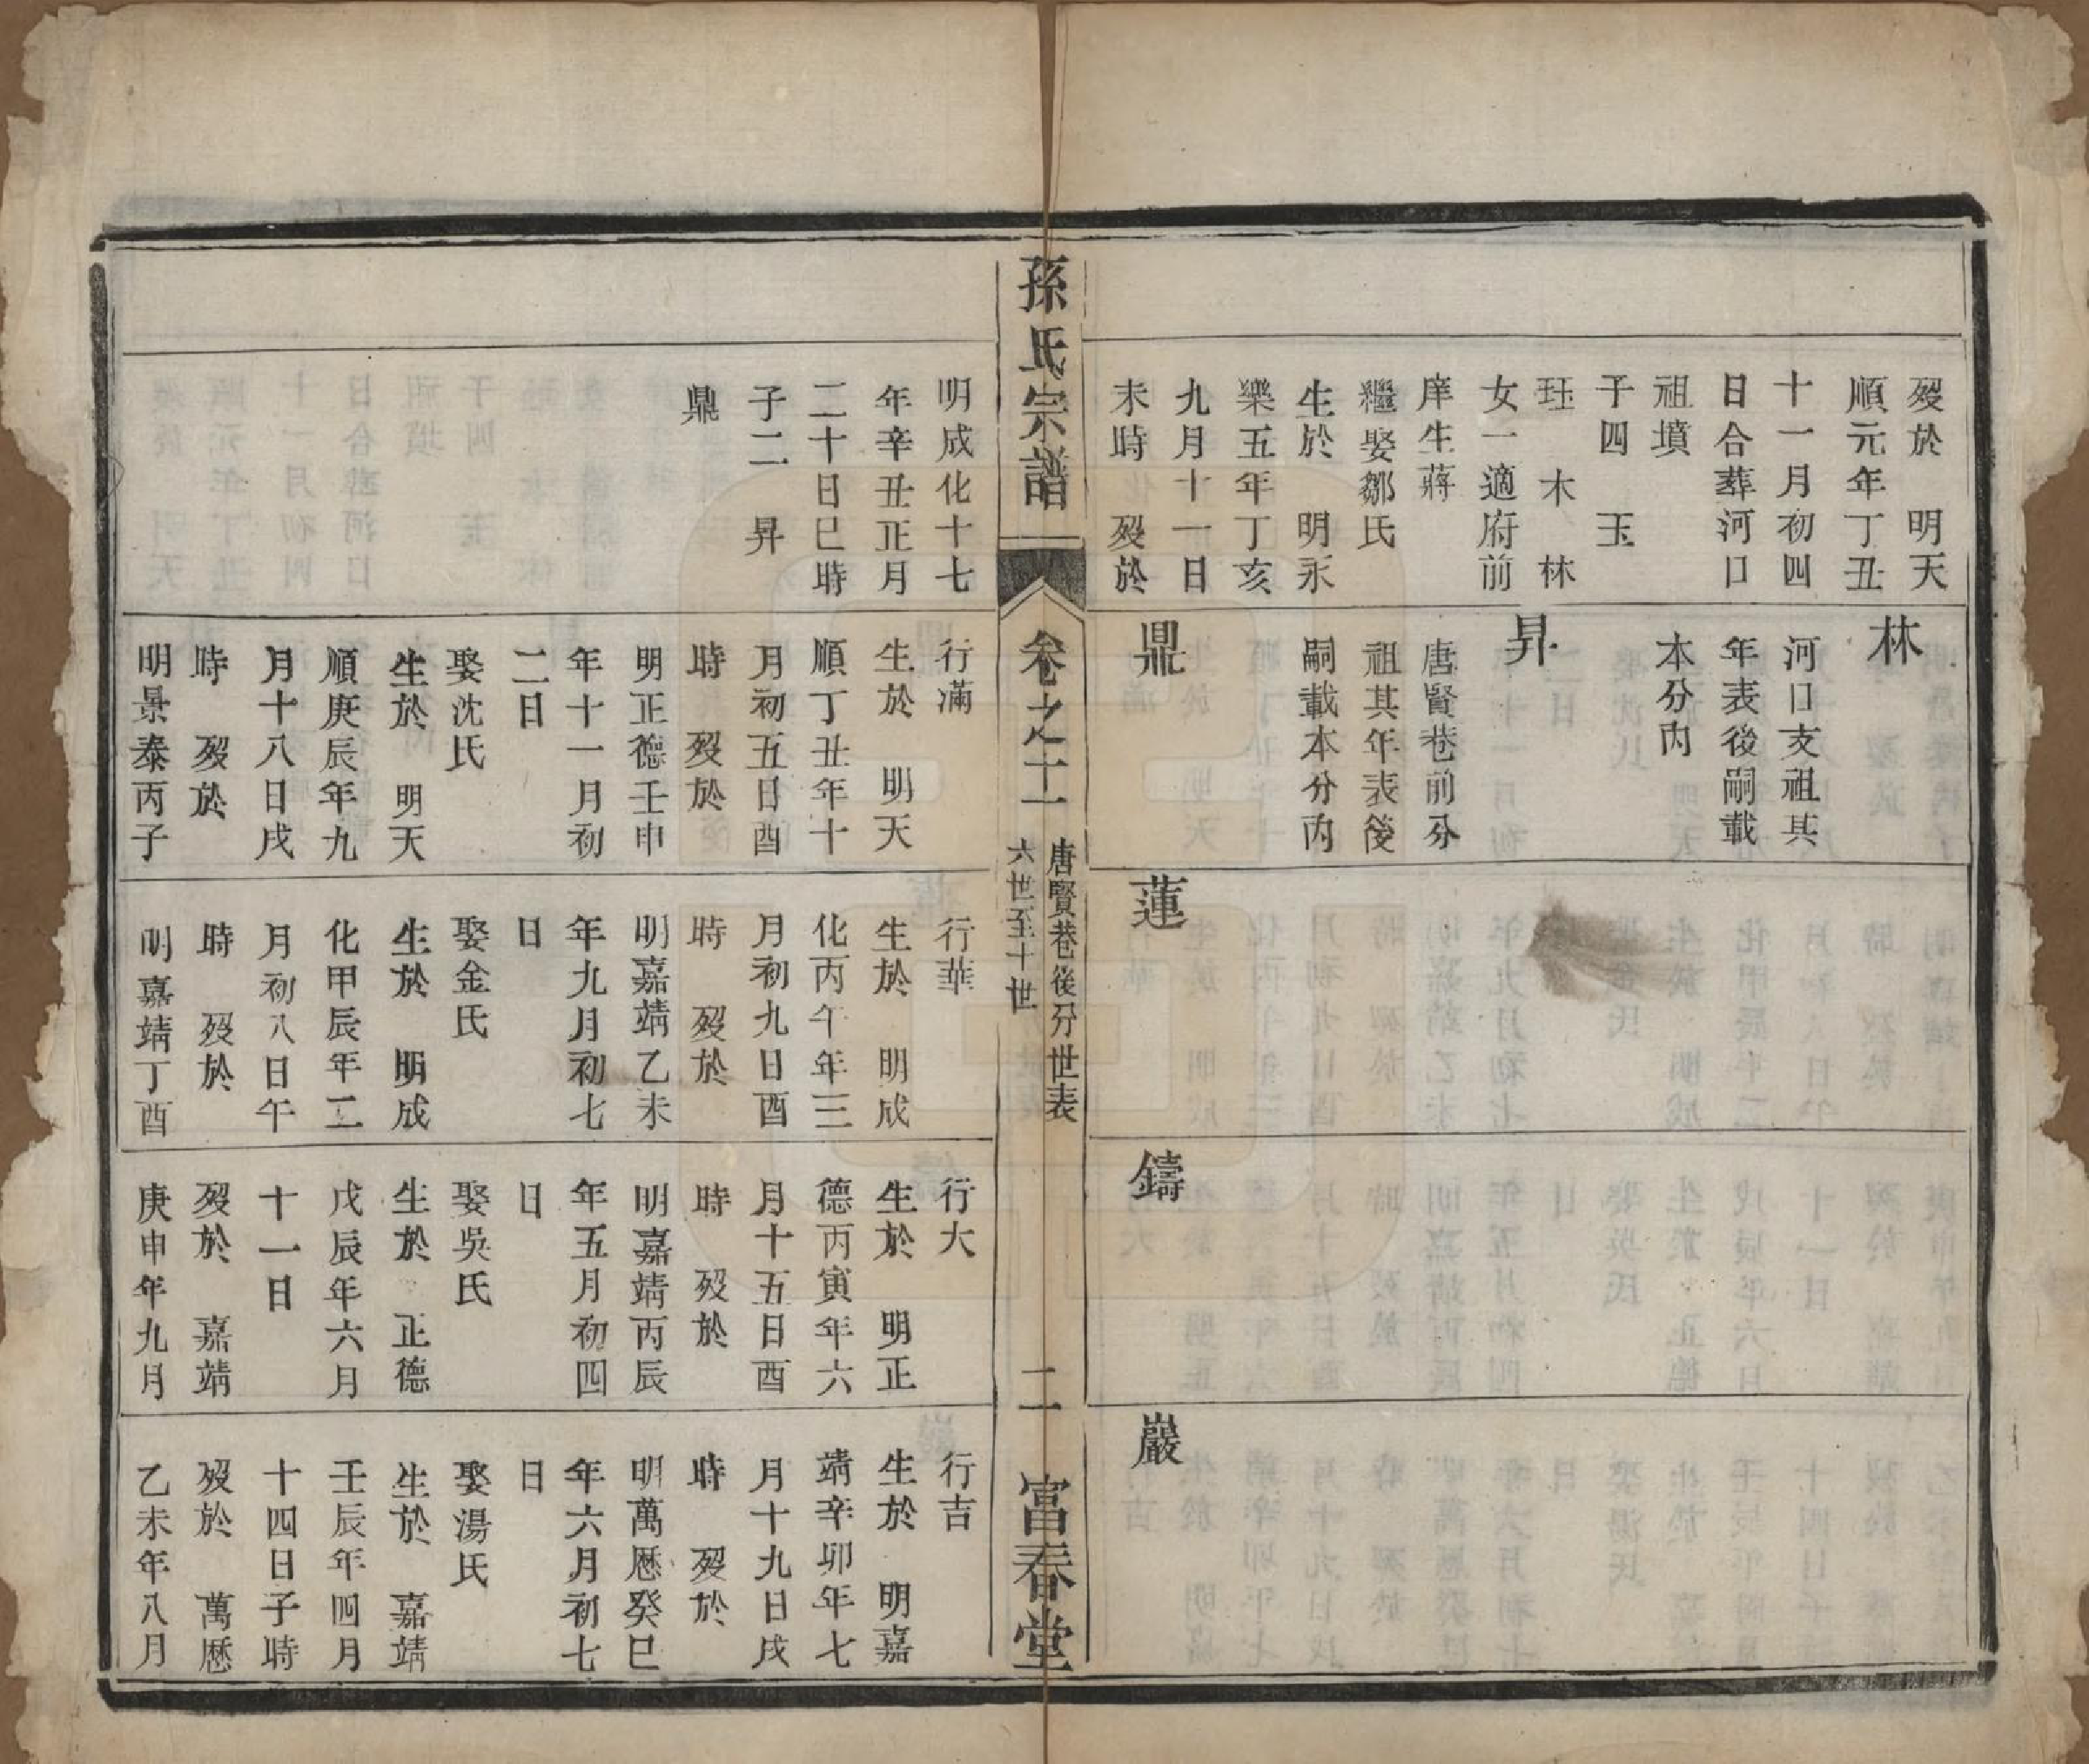 歿於　明天
順元年丁丑
十一月初四
日合葬河口
祖墳
子四　玉
珏　木　林
女一適府前
庠生蔣
繼娶鄒氏
生於　明永
樂五年丁亥
九月十一日
未時　歿於
林
河口支祖其
年表後嗣載
本分内
昇
唐賢巷前分
祖其年表後
嗣載本分内
鼎
蓮
鑄
巖
孫氏宗譜
卷之十一
唐賢巷後分世表
六世至十世
二
富春堂
明成化十七
年辛丑正月
二十日巳時
子二　昇
鼎
行滿
生於　明天
順丁丑年十
月初五日酉
時　歿於
明正德壬申
年十一月初
二日
娶沈氏
生於　明天
順庚辰年九
月十八日戌
時　歿於
明景泰丙子
行華
生於　明成
化丙午年三
月初九日酉
時　歿於
明嘉靖乙未
年九月初七
日
娶金氏
生於　明成
化甲辰年二
月初八日午
時　歿於
明嘉靖丁酉
行大
生於　明正
德丙寅年六
月十五日酉
時　歿於
明嘉靖丙辰
年五月初四
日
娶吳氏
生於　正德
戊辰年六月
十一日
歿於　嘉靖
庚申年九月
行吉
生於　明嘉
靖辛卯年七
月十九日戌
時　歿於
明萬歷癸巳
年六月初七
日
娶湯氏
生於　嘉靖
壬辰年四月
十四日子時
歿於　萬歷
乙未年八月